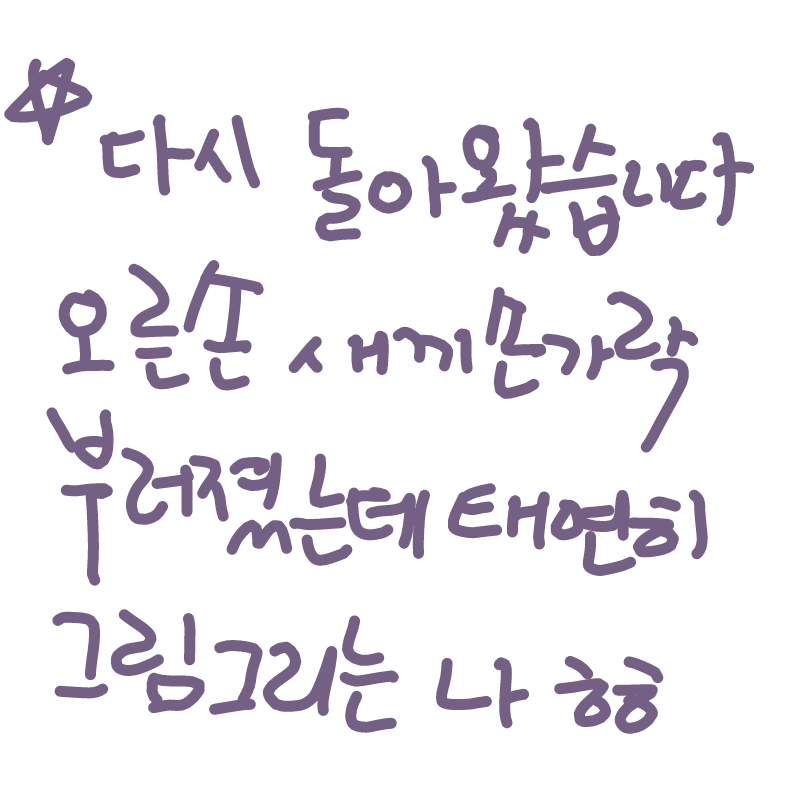 ☆다시 돌아왔습니다
오른손 새끼손가락
부러졌는데 태연히
그림그리는 나 ㅎㅎ